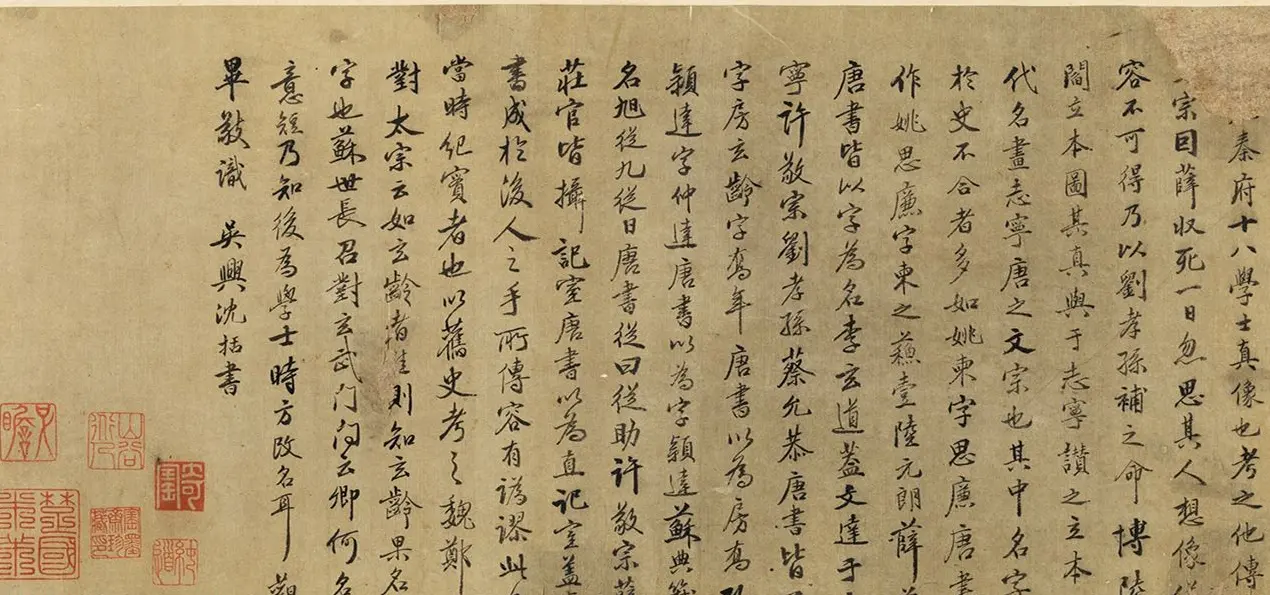 秦府十八學士真像也考之他傳
宗回薛收死一日忽思其人想像
容不可得乃以劉孝孫補之命博陸
閻立本圖其真與于志寧讃之立本
代名畫志寧唐之文宗也其中名字
於史不合者多如姚柬字思廉唐書
作姚思廉字柬之蘓壹陸元朗薛
唐書皆以字為名李玄道蓋文達于
寧許敬宗劉孝孫蔡允恭唐書皆
字房玄齡字喬年唐書以為房喬
穎達字仲達唐書以為字穎達蘇典籖
名旭從九從日唐書從曰從助許敬宗薛
莊官皆攝記室唐書以為直記室蓋
書成於後人之手所傳容有譌謬此
當時紀實者也以舊史考之魏鄭
對太宗云如玄齡者則知玄齡果名
字也蘇世長召對玄武门问云卿何名
意短乃知後為學士時方改名耳
畢敬識 吳興沈括書